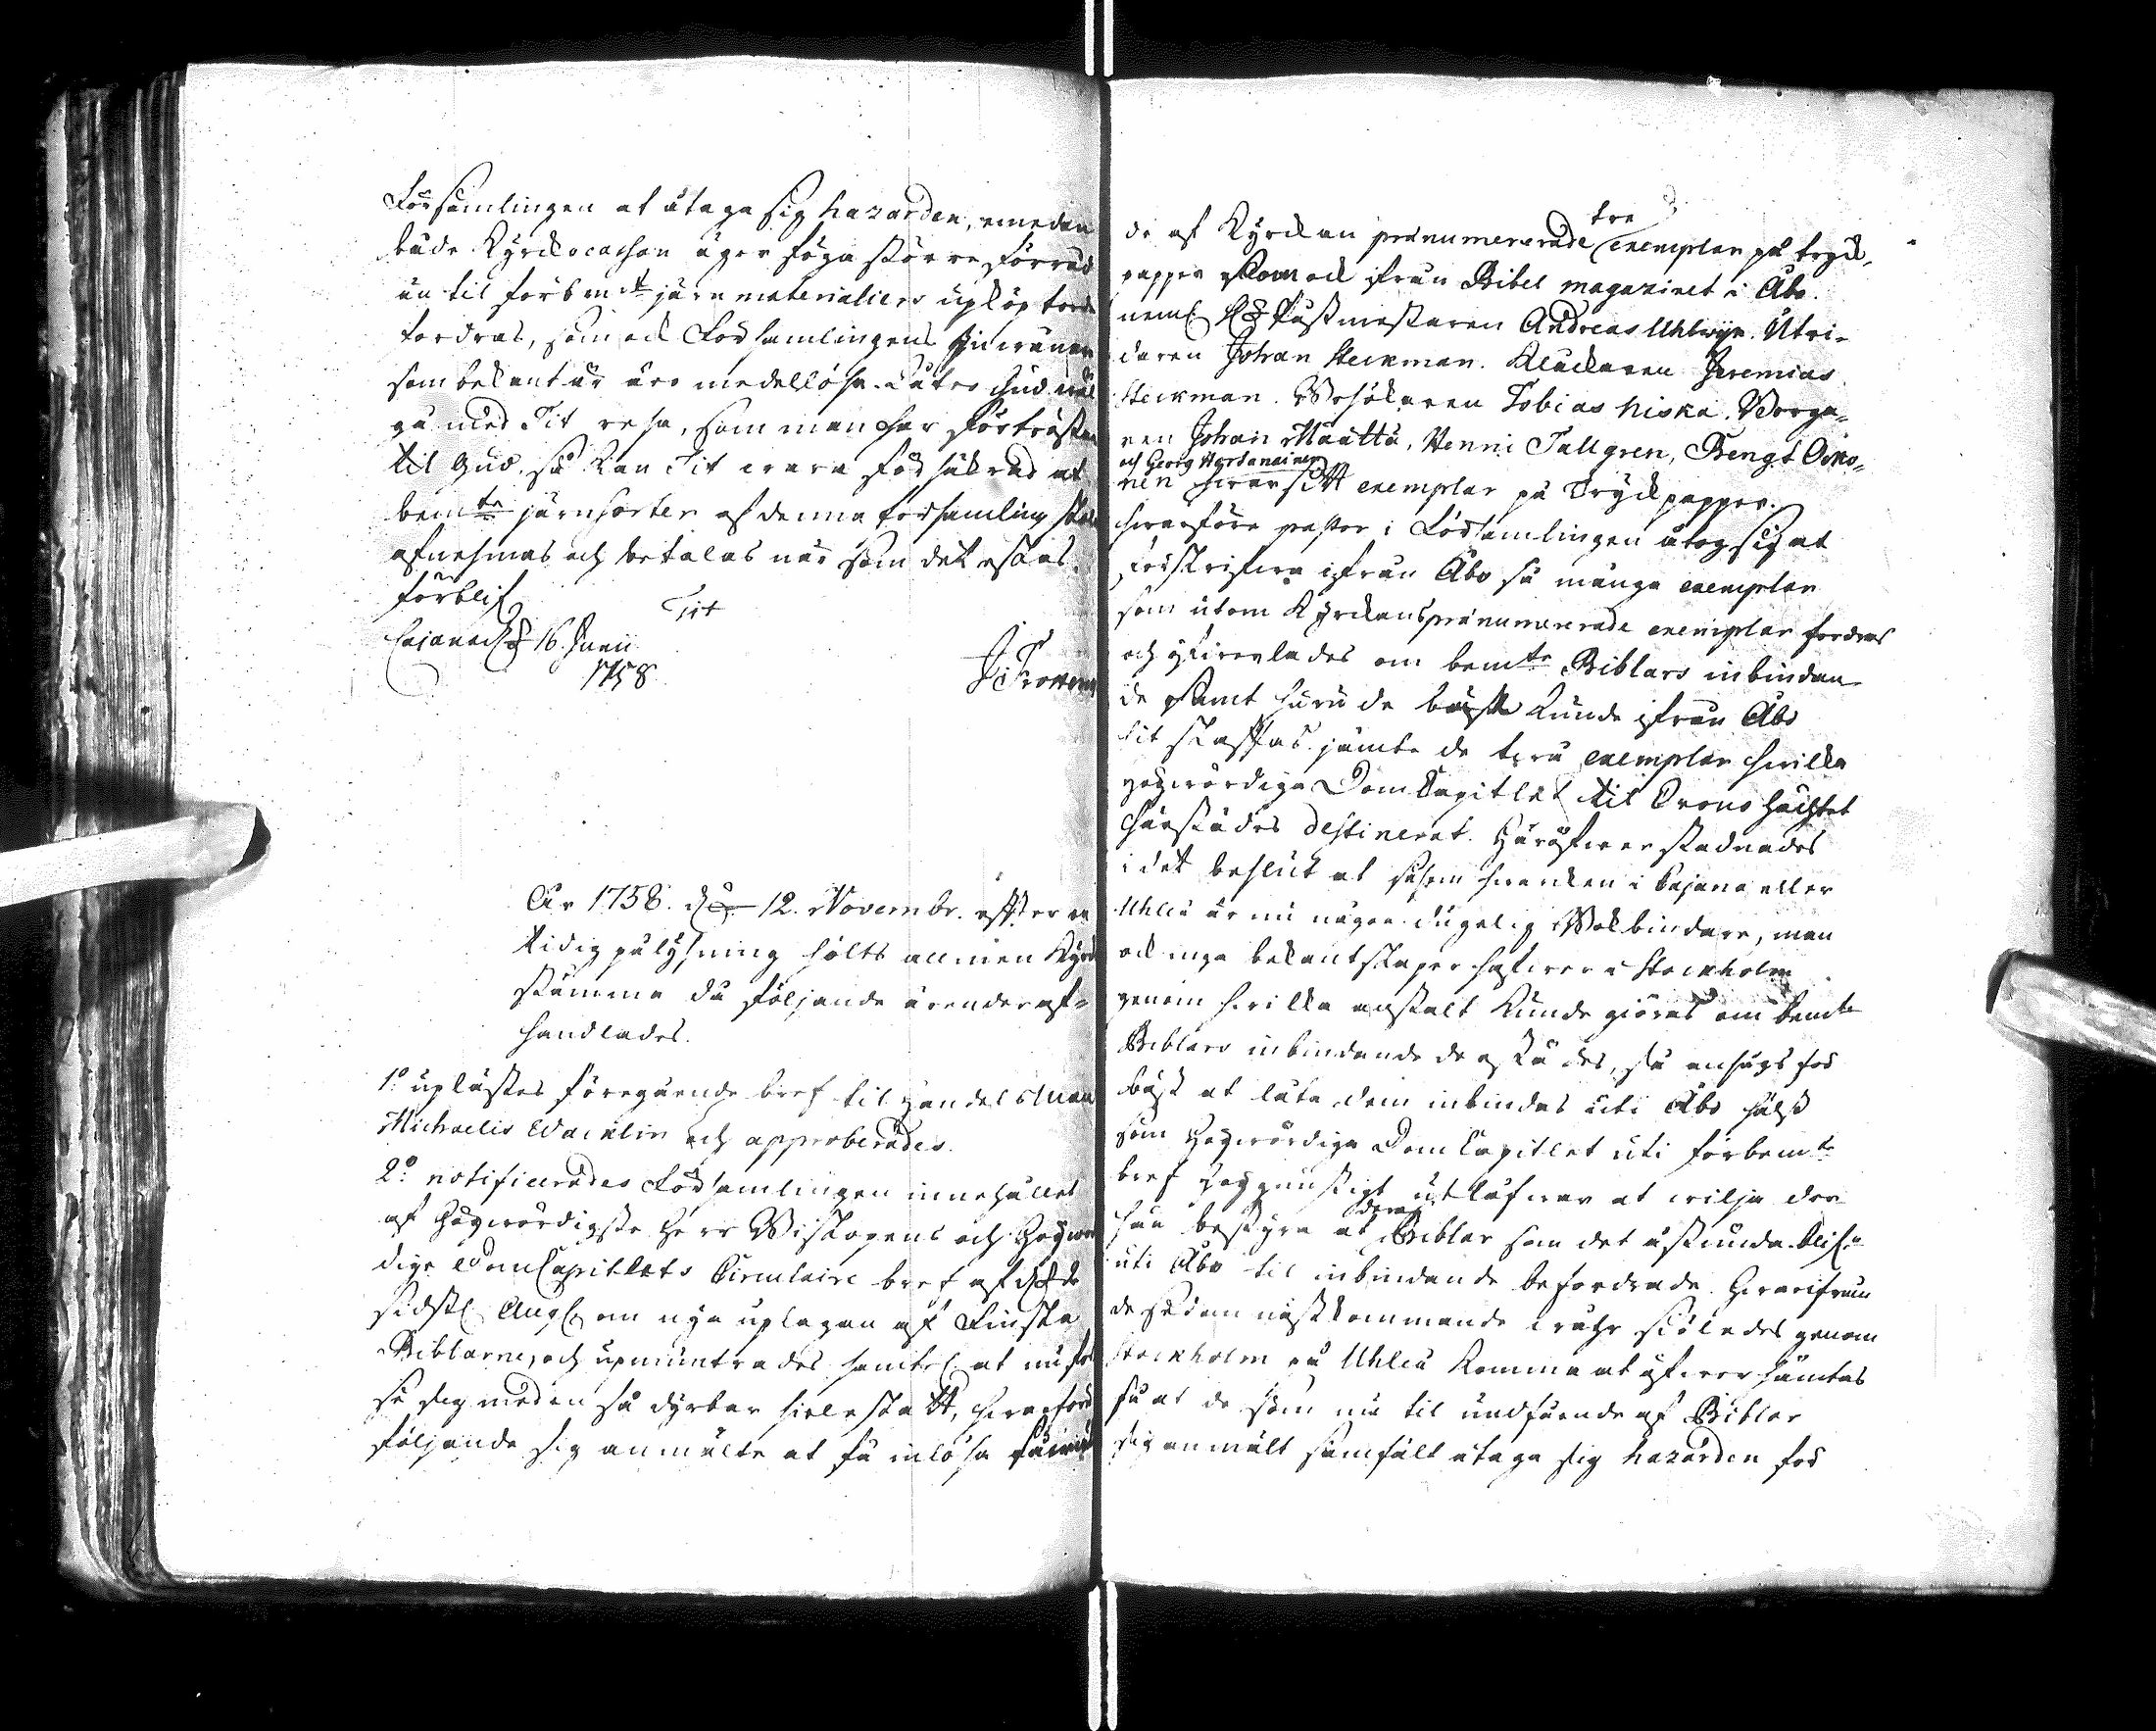 Församlingen at åtaga sig hazarden, emedan
både Kyrckocassan äger föga större förråd
än til förbem:t järn materialiers upköp
fordras, som ock Församlingens Inwånare
som bekant är äro medellösa. Låter Gud wäl
gå med Tit resa, som man har förtröstan
til Gud, så kan Tit wara försäkrad at
bem:te järnsorter af denna församling skola
afnehmas och betalas när som det åstas.
förblif
Tit
Cajana d. 16. Junii
1758
Är 1758. d. 12. Novembr. effter en
tidig pålysning hölts allmen Kyrck
stämma då föliande ärender af-
handlades.
1:o uplästes föregående bref til Handels Man
Michaelis Wacklin och approberades.
2:o notificerades Församlingen innehållet
af Högwördigste Herr Biskopens och Högwör
dige DomCapitlets Circulaire bref af
sidstl. Aug. om nya uplagan af Finska
Biblarne, och upmuntrades samtel. at nu för
se sig med en så dyrbar siela skatt, hwarföre
följande sig anmälte at få inlösa
de af Kyrckan prænumererade tre exemplar på tryck
papper som ock ifrån Bibel magazinet i Åbo.
neml. H:r Postmestaren Andreas Uhlwijk. Utri-
daren Johan Steckman. Kluckaren Jeremias
Steckman. Besökaren Tobias Niska. Borga-
ren Johan Määttä, Henric Tallgren, Bengt Ocko-
och Georg Hartanainen
nen hwar sitt exemplar på Tryckpapper.
hwarföre pastor i Församlingen åtog sig at
förskrifwa ifrån Åbo så många exemplar
som utom Kyrckans prænumererade exemplar fordras
och öfwerlades om bem:te Biblars inbindan-
de samt huru de bäst kunde ifrån Åbo
hit skaffas jämte de twå exemplar hwilka
Högwördiga DomCapitlet til Crono Häcktet
härstädes destinerat. Häröfwer stadnades
i det beslut at såsom hwarcken i Cajana eller
Uhleå är nu någon dugelig Bokbindare, man
ock inga bekantskaper hafwer i Stockholm
genom hwilka anstalt kunde giöras om bem:te
Biblars inbindande de åstades, så ansågs för
bäst at låta dem inbindas uti Åbo hälst
som Högwördiga DomCapitlet uti förbem:te
bref höggunstigt utlåfwar at wilja der
hän bestyra at deras Biblar som det åstunda blifwa
uti Åbo til inbindande befordrade. Hwarifrån
de sedan nästkommande wåhr siöledes genom
Stockholm på Uhleå komma at öfwer hämtas
så at de som nu til undfående af Biblar
sig anmält samfält åtaga sig hazarden för